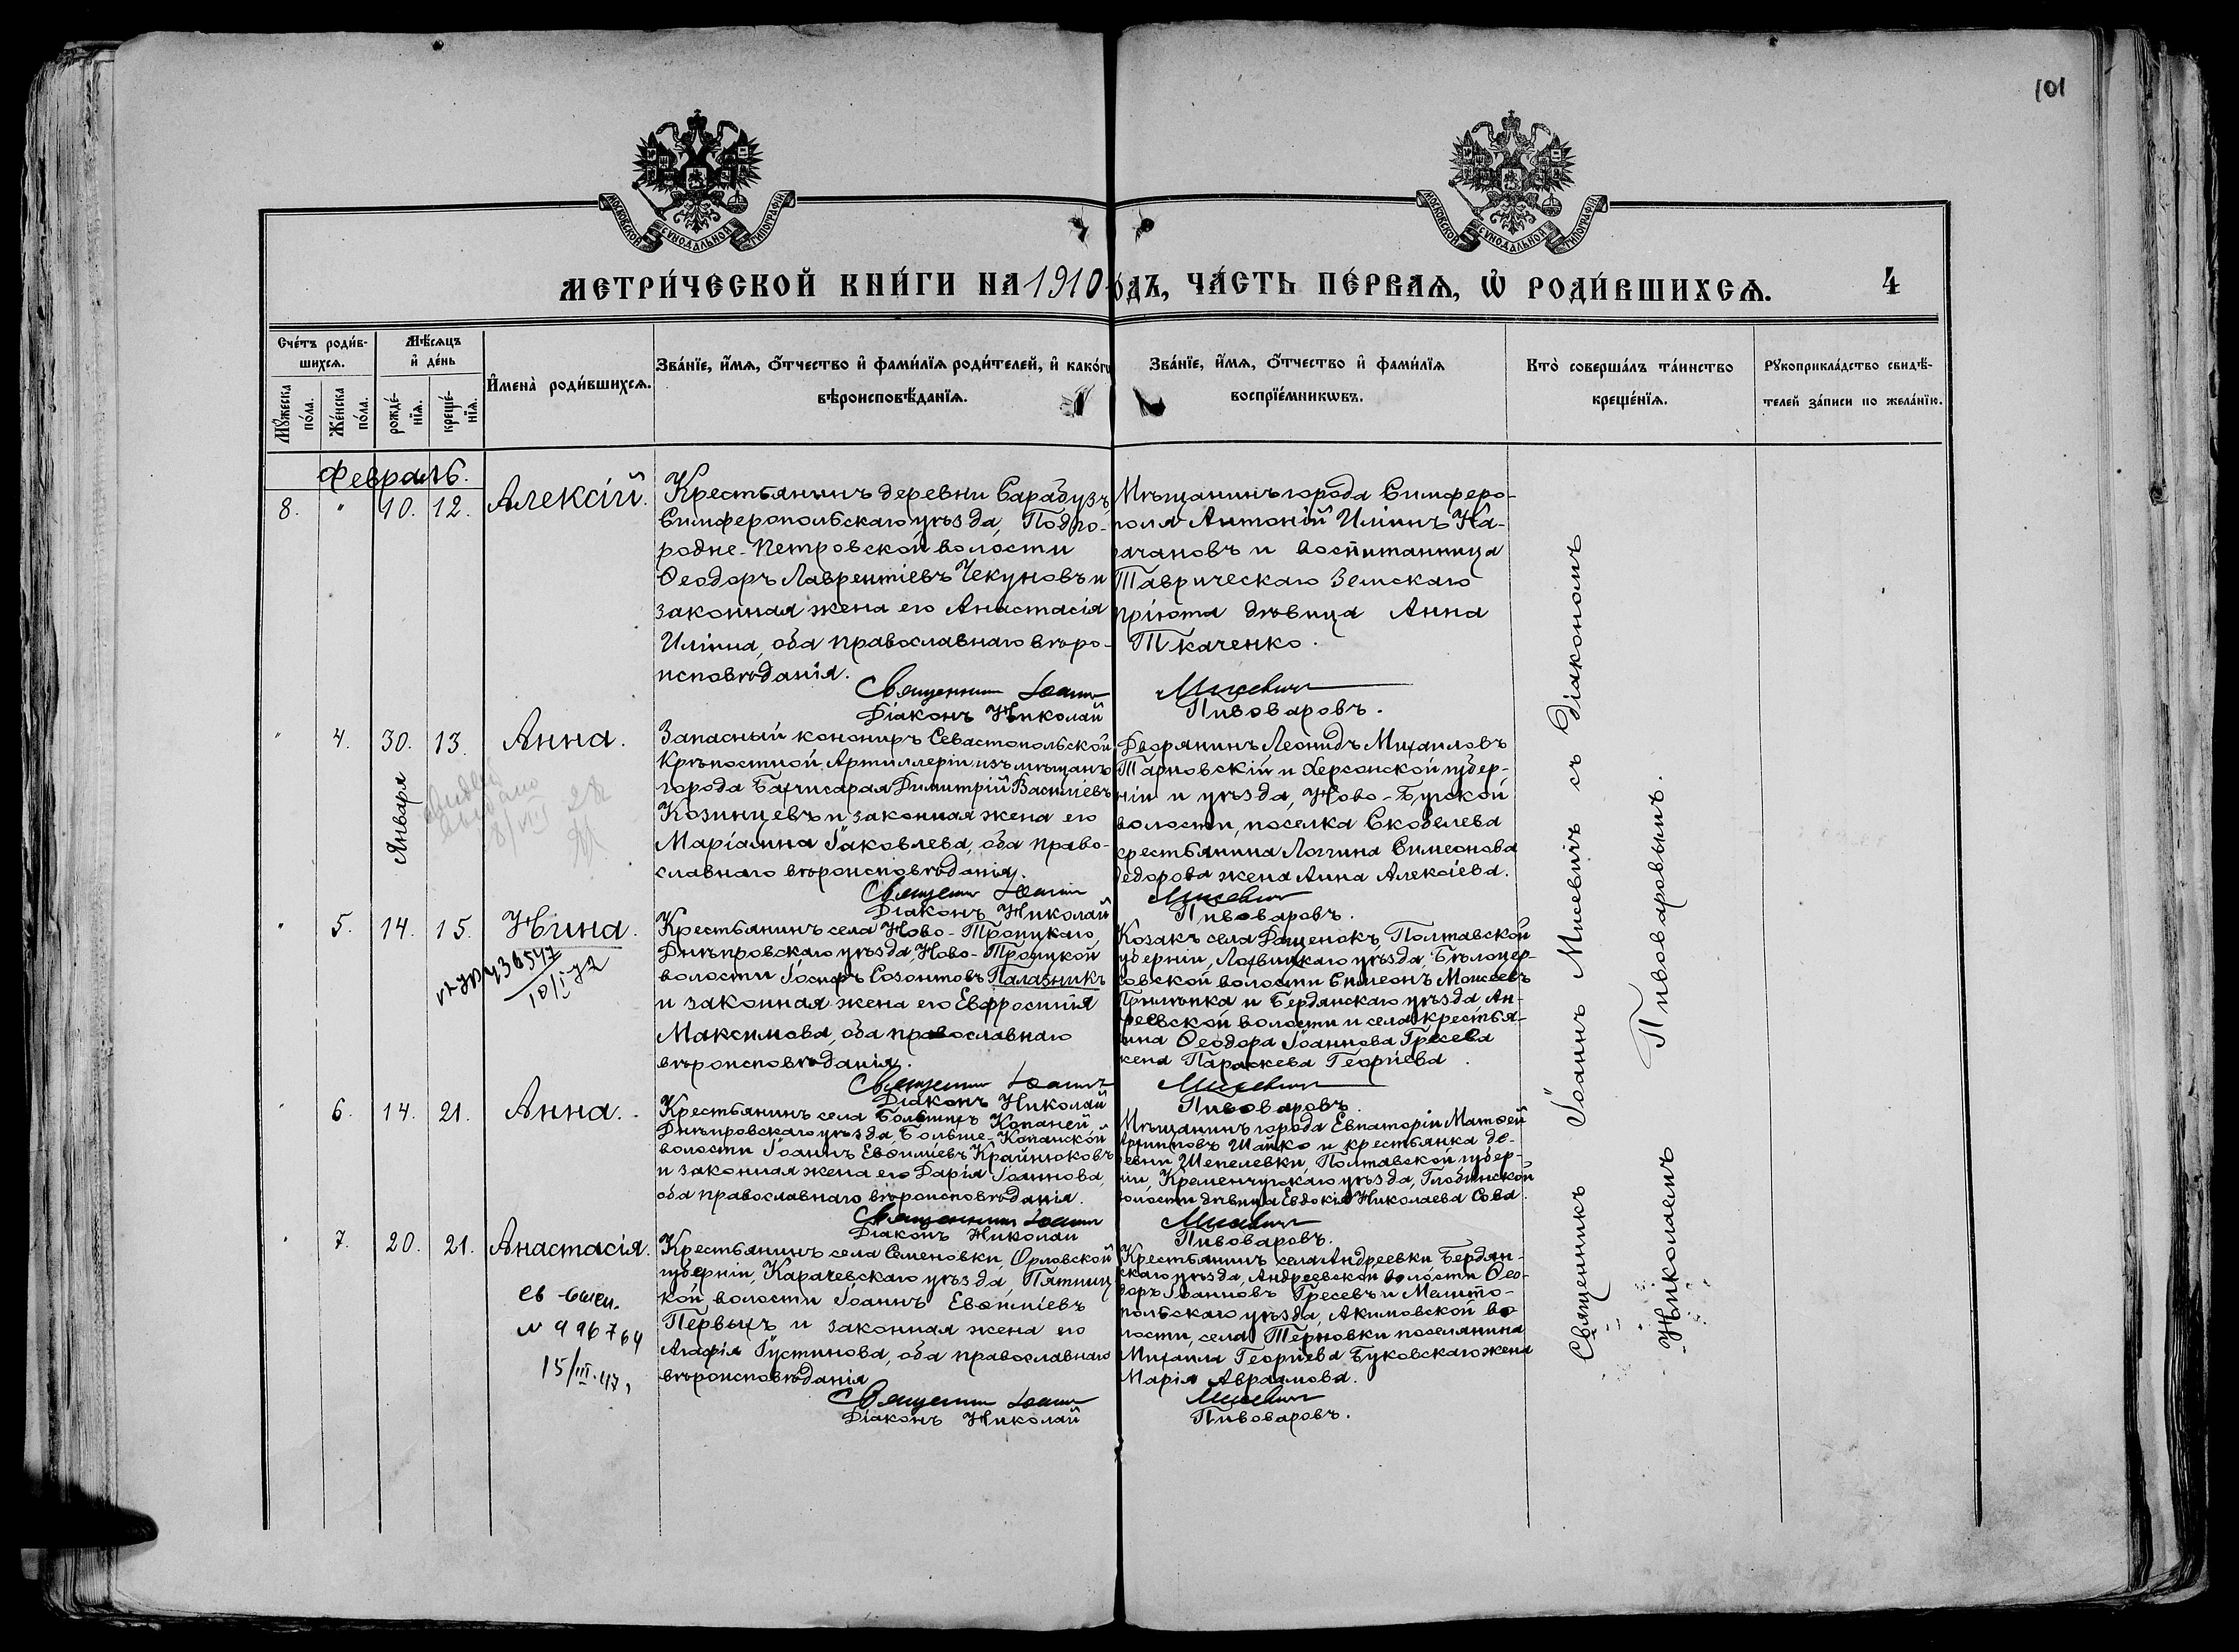 101
МОСКОВСКОЙ СѴНОДАЛЬНОЙ ТИПОГРАФІИ
МОСКОВСКОЙ СѴНОДАЛЬНОЙ ТИПОГРАФІИ
МЕТРИ́ЧЕСКОЙ КНИ́ГИ НА 1910 О́ДЪ, ЧА́СТЬ ПЕ́РВАѦ, Ѡ҆ РОДИ́ВШИХСѦ. 4
Сче́тъ роди́в-
шихсѧ.
Мꙋ́жеска по́ла.
Же́нска по́ла.
Мѣ́сѧцъ
и҆ де́нь
рожде́-
нїѧ.
креще́-
нїѧ.
И҆мена̀ роди́вшихсѧ.
Зва́нїе, и҆́мѧ, ѻ҆́тчество и҆ фами́лїѧ роди́телей, и҆ како́гѡ
вѣроисповѣ́данїѧ.
Зва́нїе, и҆́мѧ, ѻ҆́тчество и҆ фами́лїѧ
воспрїе́мникѡвъ.
Кто̀ соверша́лъ та́инство
креще́нїѧ.
Рꙋкоприкла́дство свидѣ́-
телей за́писи по жела́нїю.
Февраль.
8. " 10. 12. Алексій.
Крестьянинъ деревни Сарабузъ,
Симферопольскаго уѣзда, Подго-
родне-Петровской волости
Ѳеодоръ Лаврентіевъ Чекуновъ и
законная жена его Анастасія
Иліина, оба православнаго вѣро-
исповѣданія.
Священникъ Іоаннъ
Діаконъ Николай
Мѣщанинъ города Симферо-
поля Антоній Иліинъ Ка-
рачановъ и воспитанница
Таврическаго Земскаго
пріюта дѣвица Анна
Ткаченко.
Мисевичъ
Пивоваровъ.
" 4. 30. 13. Анна.
Января
Запасный канониръ Севастопольской
Крѣпостной Артиллеріи изъ мѣщанъ
города Бахчисарая Димитрій Василіевъ
Козинцевъ и законная жена его
Маріамна Іаковлева, оба право-
славнаго вѣроисповѣданія.
Священникъ Іоаннъ
Діаконъ Николай
Дворянинъ Леонидъ Михаиловъ
Тарновскій и Херсонской губер-
ніи и уѣзда, Ново-Бугской
волости, поселка Скобелева
крестьянина Логгина Симеонова
Ѳедорова жена Анна Алексіева.
Мисевичъ
Пивоваровъ.
" 5. 14. 15. Нина.
436547
10/I-72
Крестьянинъ села Ново-Троицкаго,
Днѣпровскаго уѣзда, Ново-Троицкой
волости Іосифъ Созонтовъ Палазникъ
и законная жена его Евфросинія
Максимова, оба православнаго
вѣроисповѣданія.
Священникъ Іоаннъ
Діаконъ Николай
Козакъ села Даценокъ, Полтавской
губерніи, Лохвицкаго уѣзда, Бѣлоцер-
ковской волости Симеонъ Моисеевъ
Прилѣпка и Бердянскаго уѣзда Ан-
дреевской волости и села крестья-
нина Ѳеодора Іоаннова Гресева
жена Параскева Георгіева.
Мисевичъ
Пивоваровъ.
" 6. 14. 21. Анна.
Крестьянинъ села Большихъ Копаней,
Днѣпровскаго уѣзда, Больше-Копанской
волости Іоаннъ Евѳиміевъ Крайнюковъ
и законная жена его Дарія Іоаннова,
оба православнаго вѣроисповѣданія.
Священникъ Іоаннъ
Діаконъ Николай
Мѣщанинъ города Евпаторіи Матѳей
Архипповъ Шайко и крестьянка де-
ревни Шепелевки, Полтавской губер-
ніи, Кременчугскаго уѣзда, Глобинской
волости дѣвица Евдокія Николаева Сова.
Мисевичъ
Пивоваровъ.
" 7. 20. 21. Анастасія.
№ 996764
15/III-47.
Крестьянинъ села Семеновки, Орловской
губерніи, Карачевскаго уѣзда, Пятниц
кой волости Іоаннъ Евѳиміевъ
Первыхъ и законная жена его
Агафія Іустинова, оба православнаго
вѣроисповѣданія
Священникъ Іоаннъ
Діаконъ Николай
Крестьянинъ села Андреевки Бердян-
скаго уѣзда, Андреевской волости Ѳео-
доръ Іоанновъ Гресевъ и Мелито-
польскаго уѣзда, Акимовской во
лости, села Терновки поселянина
Михаила Георгіева Буковскаго жена
Марія Авраамова.
Мисевичъ
Пивоваровъ.
Священникъ Іоаннъ Мисевичъ съ діакономъ
Николаемъ Пивоваровымъ.